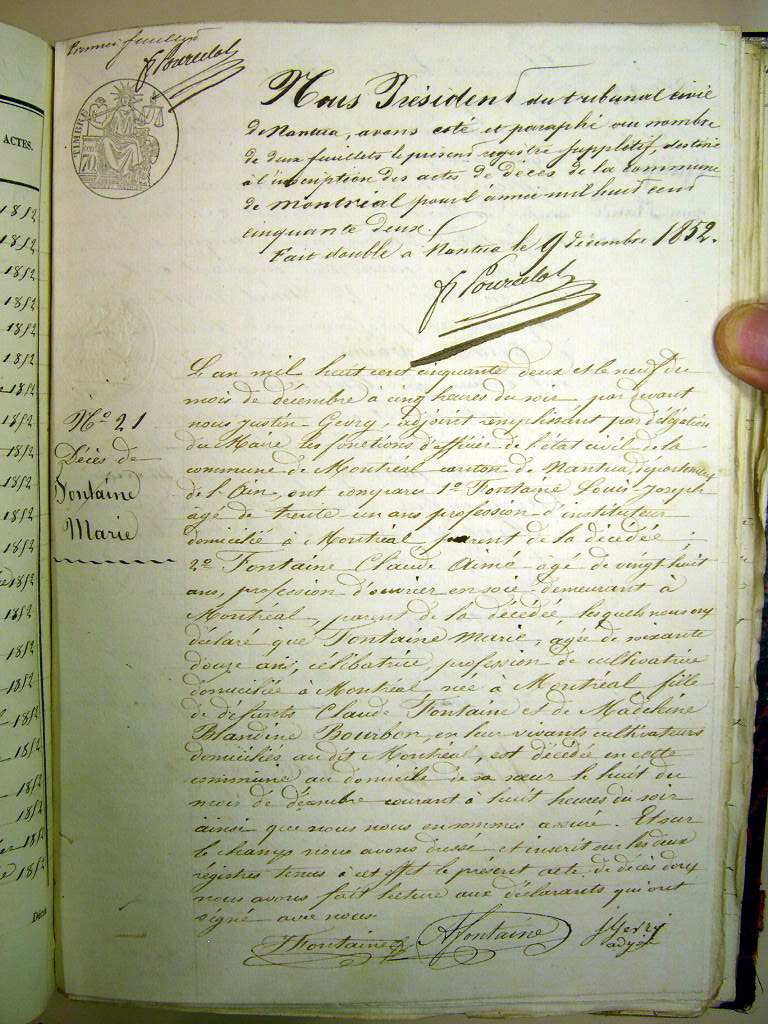 ACTES.
1852
1852
1852
1852
1852
1852
1852
1852
1852
1852
1852
1852
1852
1852
1852
1852
1852
1852
1852
1852
1852
1852
Premier feuillet
Pourcelot
TIMBRE
Nous Président du tribunal civil
de Nantua, avons coté et paraphé au nombre
de deux feuillets le présent registre supplétif, destiné
à l'inscription des actes de décès de la commune
de Montréal pour l'année mil huit cent
cinquante deux.
Fait double à Nantua le 9 décembre 1852.
Pourcelot
N° 21
Décès de
Fontaine
Marie
L'an mil huit cent cinquante deux et le neuf du
mois de décembre à cinq heures du soir par devant
nous Justin Georg, adjoint remplissant par délégation
du Maire les fonctions d'officier de l'état civil de la
commune de Montréal canton de Nantua département
de l'Ain, ont comparu 1° Fontaine Louis Joseph
agé de trente un ans profession d'instituteur
domicilié à Montréal parent de la décédée;
2° Fontaine Claude Aimé âgé de vingt huit
ans, profession d'ouvrier en soie demeurant à
Montréal, parent de la décédée, lesquels nous ont
déclaré que Fontaine Marie, agée de soixante
douze ans, célibatrice, profession de cultivatrice
domiciliée à Montréal née à Montréal fille
de défunts Claude Fontaine et de Madeleine
Blandine Bourbon, en leur vivants cultivateurs
domiciliés au dit Montréal, est décédée en cette
commune au domicile de sa sœur le huit du
mois de décembre courant à huit heures du soir
ainsi que nous nous en sommes assuré. Et sur
le champ nous avons dressé et inscrit sur les deux
registres tenus à cet effet le présent acte de décès dont
nous avons fait lecture aux déclarants qui ont
signé avec nous.
Fontaine
Fontaine